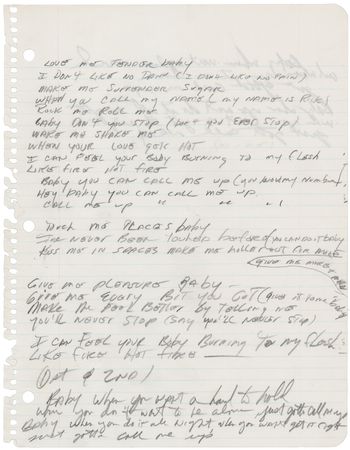 LOVE ME TENDER baby
I DON'T LIKE NO PAIN (I DON'T LIKE NO PAIN)
MAKE ME SURRENDER SUGAR
WHEN YOU CALL MY NAME (MY NAME IS RICK)
ROCK ME ROLL ME
BABY DON'T YOU STOP (DON'T YOU EVER STOP)
WAKE ME SHAKE ME
WHEN YOUR LOVE GETS HOT
I CAN FEEL YOUR BODY BURNING TO MY FLESH
LIKE FIRE HOT FIRE
BABY YOU CAN CALL ME UP (you know my number)
HEY BABY YOU CAN CALL ME UP
CALL ME UP " " "
Touch ME PLACES baby
I'VE NEVER BEEN touched before (you can do it baby)
KISS ME IN SPACES MAKE ME holler out FOR MORE
(GIVE ME MORE)
GIVE ME PLEASURE BABY
GIVE ME EVERY BIT YOU GOT (GIVE IT
MAKE ME FEEL BETTER By TELLING ME
YOU'LL NEVER STOP (SAY YOU'LL NEVER STOP)
I CAN FEEL YOUR BODY BURNING TO MY FLESH
LIKE FIRE HOT FIRE
2ND)
BABY when you want a hand to hold
when you don't want to be alone just gotta call me
BABY when you do it all night when you want get it right
just gotta call me up